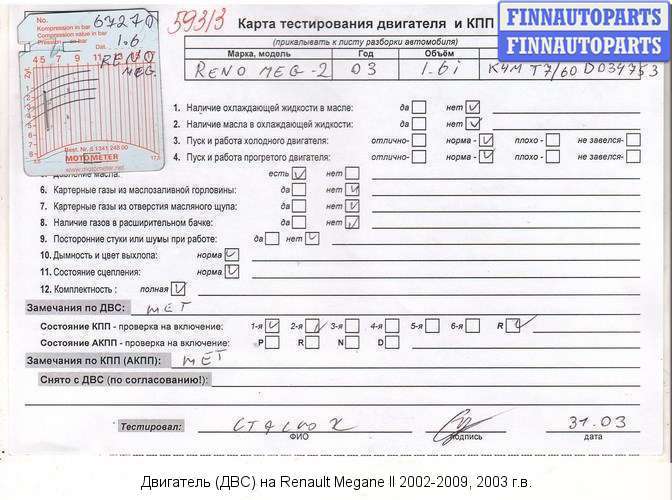 No.
Kompression in bar
Compression value in bar
Pression en bar
67270
1.6
RENO
MEG.
Best. Nr.
MOTOMETER
www.motometer.net
593/3
Карта тестирования двигателя и КПП
(прикалывать к листу разборки автомобиля)
FINNAUTOPARTS
FINNAUTOPARTS
Марка, модель Год Объём
RENO MEG-2 03 1.6i K4M T7/60 D034753
1. Наличие охлаждающей жидкости в масле: да нет
2. Наличие масла в охлаждающей жидкости: да нет
3. Пуск и работа холодного двигателя: отлично- норма - плохо - не завелся-
4. Пуск и работа прогретого двигателя: отлично- норма - плохо - не завелся-
5. Давление масла: есть нет
6. Картерные газы из маслозаливной горловины: да нет
7. Картерные газы из отверстия масляного щупа: да нет
8. Наличие газов в расширительном бачке: да нет
9. Посторонние стуки или шумы при работе: да нет
10. Дымность и цвет выхлопа: норма
11. Состояние сцепления: норма
12. Комплектность : полная
Замечания по ДВС: НЕТ
Состояние КПП - проверка на включение: 1-я 2-я 3-я 4-я 5-я 6-я R
Состояние АКПП - проверка на включение: P R N D
Замечания по КПП (АКПП): НЕТ
Снято с ДВС (по согласованию!):
Тестировал: 31.03
ФИО подпись дата
Двигатель (ДВС) на Renault Megane II 2002-2009, 2003 г.в.